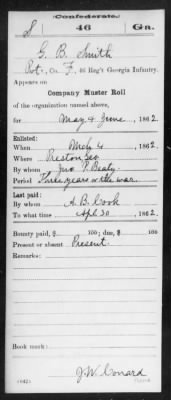 (Confederate.)
S 46 Ga.
G. B. Smith
Pvt., Co. F, 46 Reg't Georgia Infantry.
Appears on
Company Muster Roll
of the organization named above,
for May & June, 1862.
Enlisted:
When Mch 4, 1862.
Where Preston Ga
By whom Jno T. Beaty
Period Three years or the war.
Last paid:
By whom A. B. Cook
To what time Apl 30, 1862.
Bounty paid, $ 100; due, $ 100
Present or absent Present.
Remarks:
Book mark:
J. W. Conard
(642) Copyist.